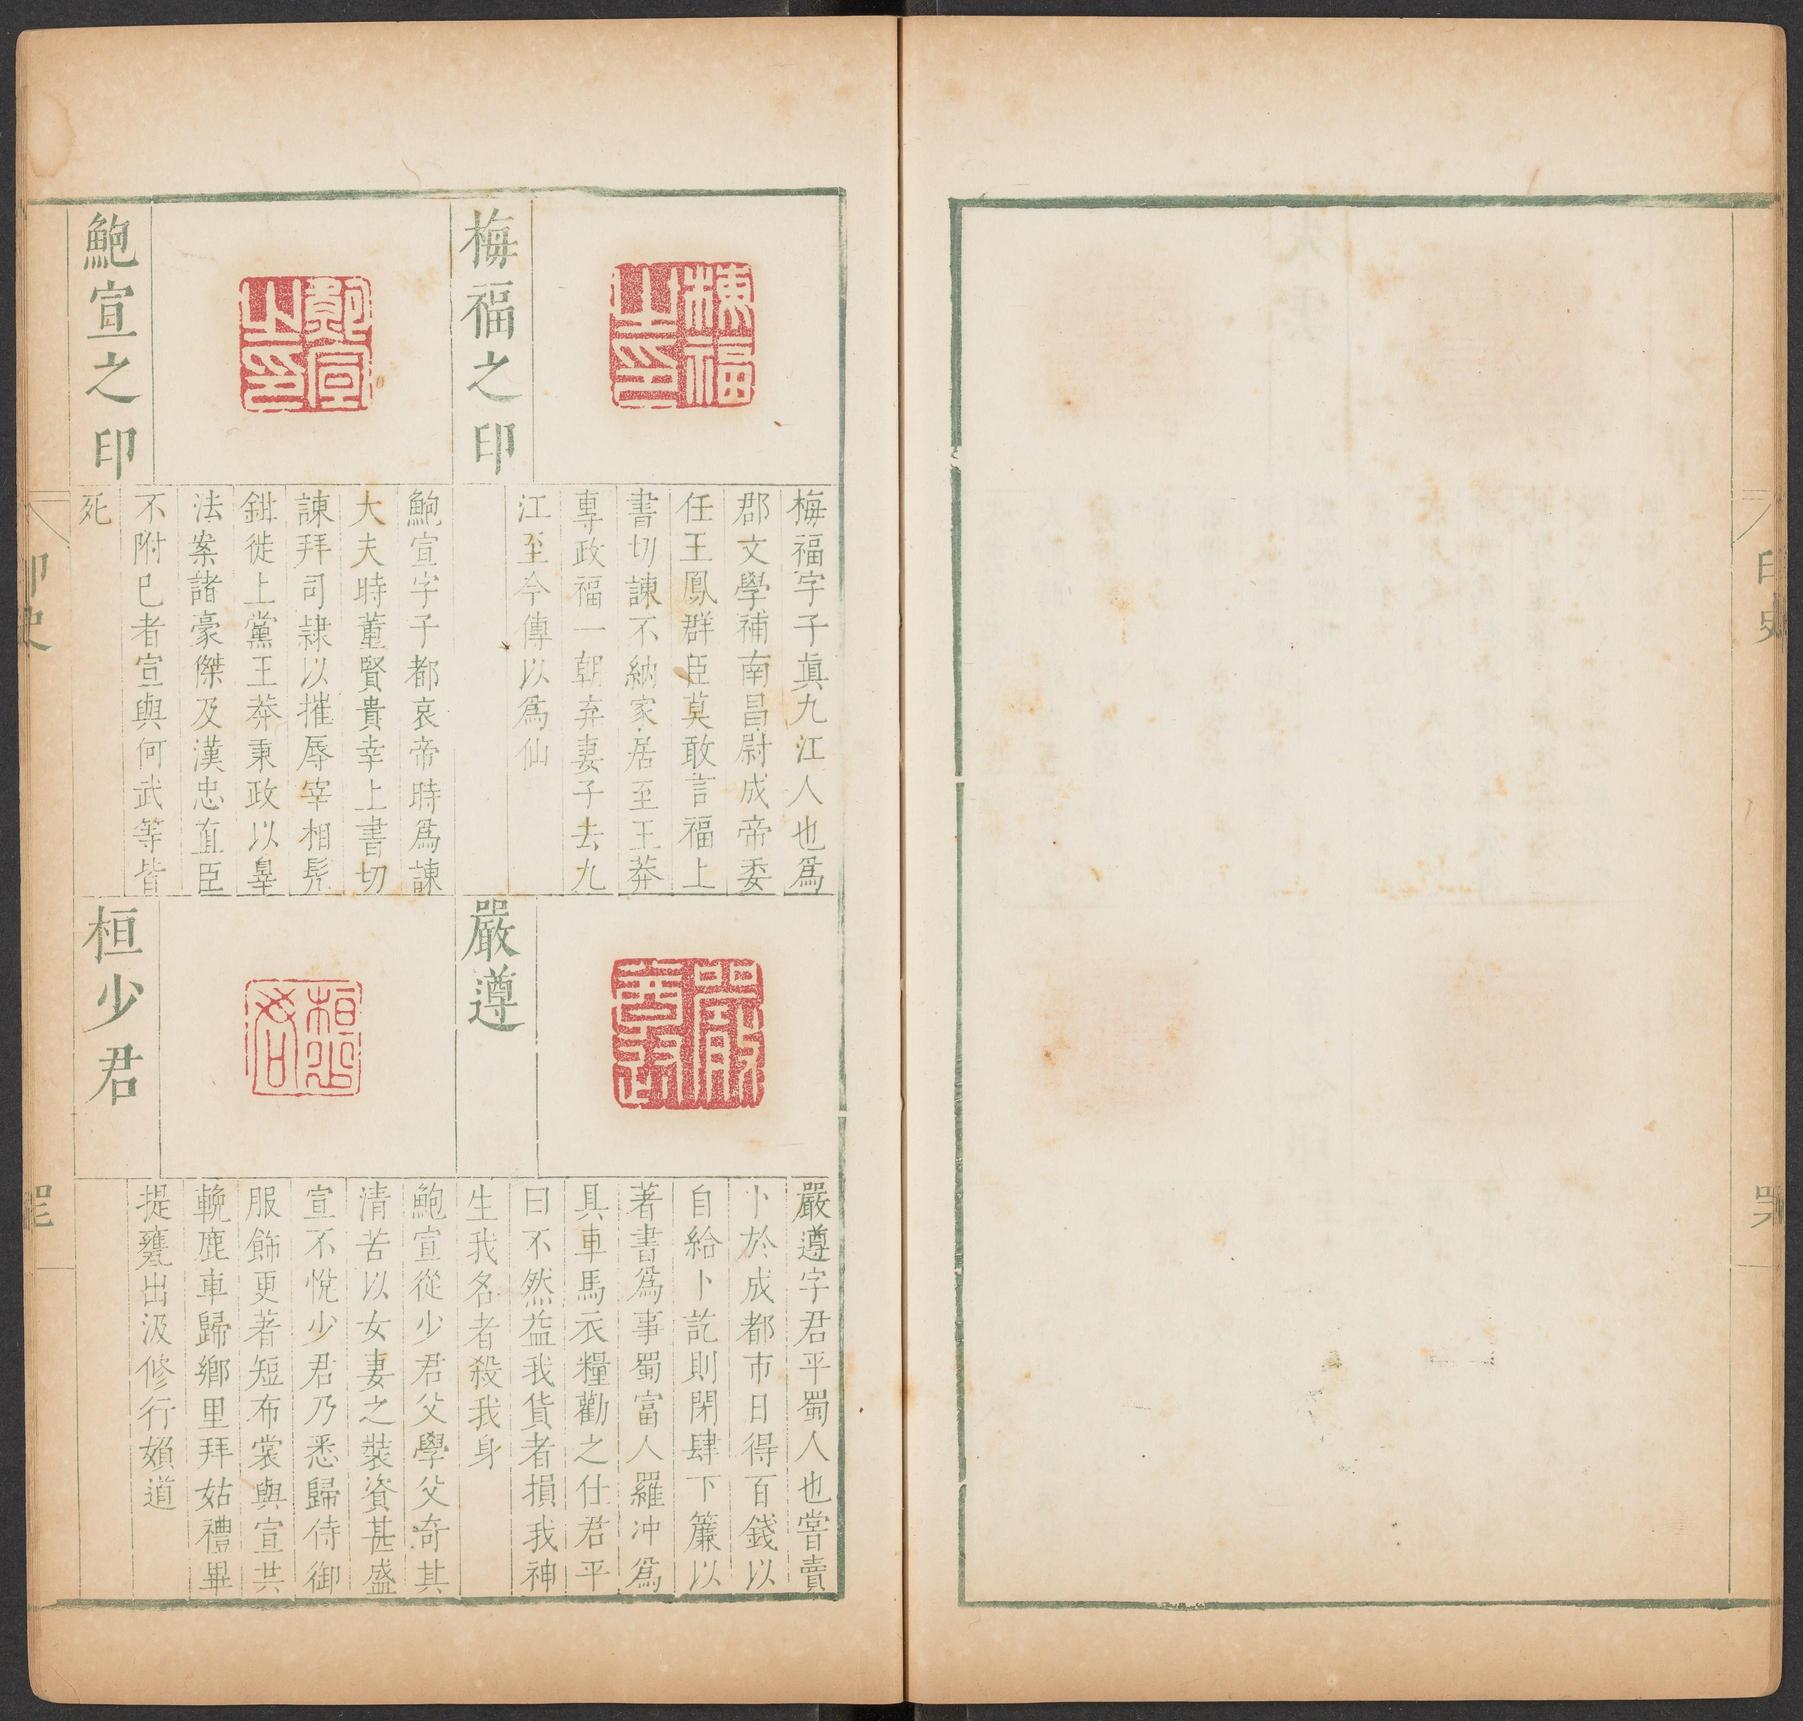 印史
梅福之印
梅福之印
梅福字子真九江人也為
郡文學補南昌尉成帝委
任王鳳群臣莫敢言福上
書切諫不納家居至王莽
專政福一朝弃妻子去九
江至今傳以為仙
鮑宣之印
鮑宣之印
鮑宣字子都哀帝時為諫
大夫時董賢貴幸上書切
諫拜司隷以摧辱宰相髠
鉗徙上黨王莽秉政以辠
法案諸豪傑及漢忠直臣
不附已者宣與何武等皆
死
嚴遵
嚴遵
嚴遵字君平蜀人也嘗賣
卜於成都市日得百錢以
自給卜訖則閉肆下簾以
著書為事蜀富人羅冲為
具車馬衣糧勸之仕君平
曰不然益我貨者損我神
生我名者殺我身
桓少君
桓少君
鮑宣從少君父學父奇其
清苦以女妻之裝資甚盛
宣不悅少君乃悉歸侍御
服飾更著短布裳與宣共
輓鹿車歸鄉里拜姑禮畢
提甕出汲修行婦道
印史